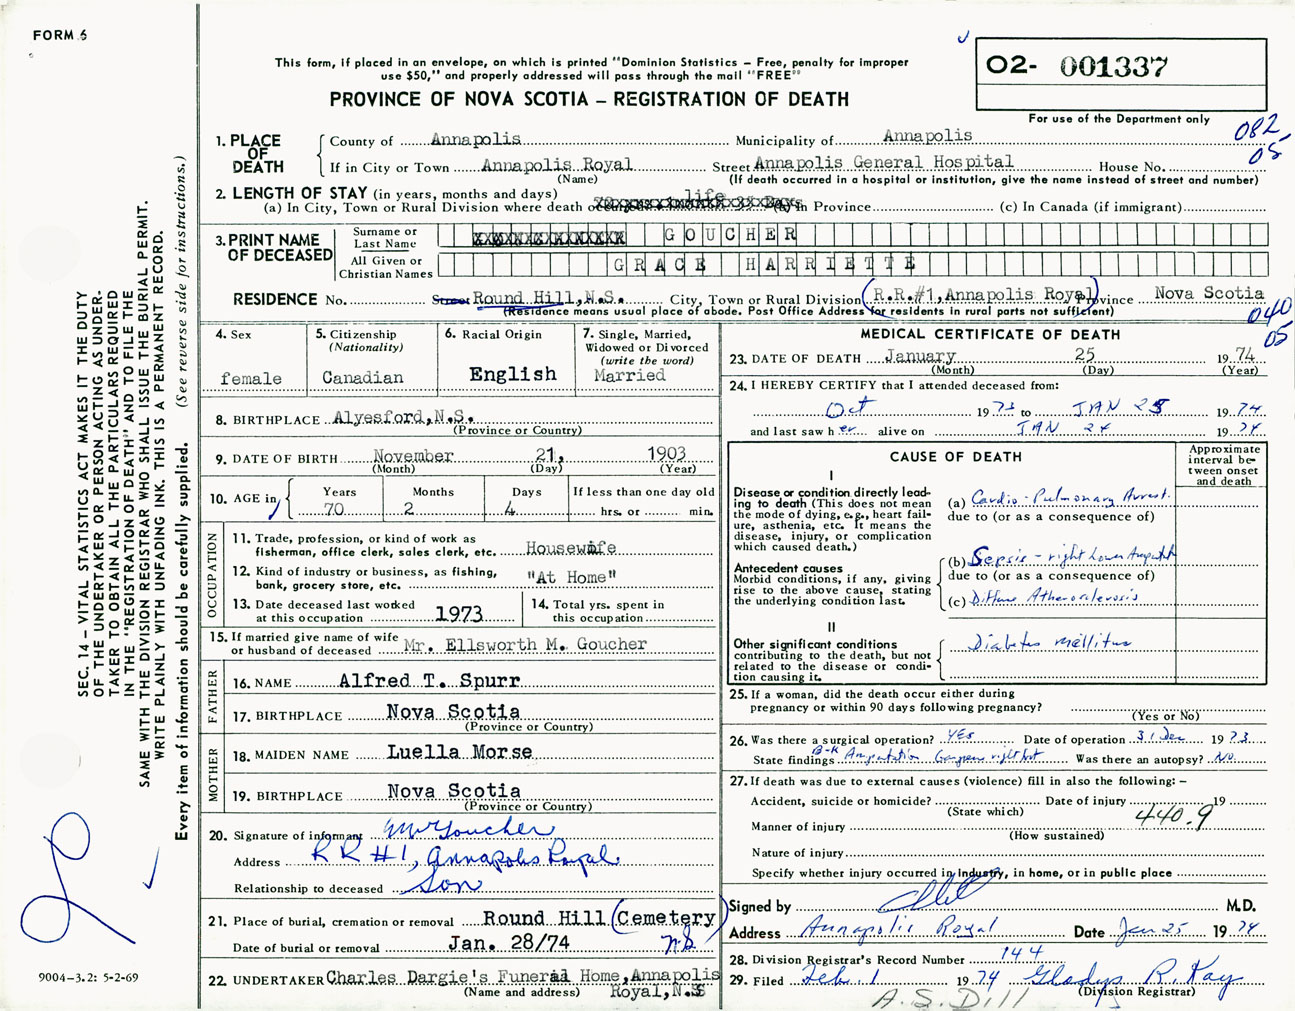 FORM 6
This form, if placed in an envelope, on which is printed "Dominion Statistics – Free, penalty for improper
use $50," and properly addressed will pass through the mail "FREE"
PROVINCE OF NOVA SCOTIA – REGISTRATION OF DEATH
02- 001337
For use of the Department only
082
05
1. PLACE OF DEATH
County of Annapolis Municipality of Annapolis
If in City or Town Annapolis Royal Street Annapolis General Hospital House No.
(Name) (If death occurred in a hospital or institution, give the name instead of street and number)
2. LENGTH OF STAY (in years, months and days)
(a) In City, Town or Rural Division where death life In Province (c) In Canada (if immigrant)
3. PRINT NAME OF DECEASED
Surname or Last Name GOUCHER
All Given or Christian Names GRACE HARRIETTE
RESIDENCE No. Street Round Hill, N.S. City, Town or Rural Division (R.R.#1, Annapolis Royal) Province Nova Scotia
(Residence means usual place of abode. Post Office Address for residents in rural parts not sufficient)
040
05
4. Sex female
5. Citizenship (Nationality) Canadian
6. Racial Origin English
7. Single, Married, Widowed or Divorced (write the word) Married
8. BIRTHPLACE Alyesford, N.S.
(Province or Country)
9. DATE OF BIRTH November 21, 1903
(Month) (Day) (Year)
10. AGE in Years 70 Months 2 Days 4 If less than one day old hrs. or min.
OCCUPATION
11. Trade, profession, or kind of work as fisherman, office clerk, sales clerk, etc. Housewife
12. Kind of industry or business, as fishing, bank, grocery store, etc. "At Home"
13. Date deceased last worked at this occupation 1973
14. Total yrs. spent in this occupation
15. If married give name of wife or husband of deceased Mr. Ellsworth M. Goucher
FATHER
16. NAME Alfred T. Spurr
17. BIRTHPLACE Nova Scotia
(Province or Country)
MOTHER
18. MAIDEN NAME Luella Morse
19. BIRTHPLACE Nova Scotia
(Province or Country)
20. Signature of informant Goucher
Address RR #1, Annapolis Royal
Relationship to deceased Son
21. Place of burial, cremation or removal Round Hill (Cemetery)
Date of burial or removal Jan. 28/74 N.S.
22. UNDERTAKER Charles Dargie's Funeral Home, Annapolis
(Name and address) Royal, N.S
MEDICAL CERTIFICATE OF DEATH
23. DATE OF DEATH January 25 1974
(Month) (Day) (Year)
24. I HEREBY CERTIFY that I attended deceased from:
Oct 1973 to JAN 25 1974
and last saw her alive on JAN 24 1974
CAUSE OF DEATH
Approximate interval between onset and death
I
Disease or condition directly leading to death (This does not mean the mode of dying, e.g., heart failure, asthenia, etc. It means the disease, injury, or complication which caused death.)
(a) Cardio-Pulmonary Arrest.
due to (or as a consequence of)
Antecedent causes
Morbid conditions, if any, giving rise to the above cause, stating the underlying condition last.
(b) Sepsis - right lower
due to (or as a consequence of)
(c) Diffuse Atherosclerosis
II
Other significant conditions
contributing to the death, but not related to the disease or condition causing it.
Diabetes mellitus
25. If a woman, did the death occur either during pregnancy or within 90 days following pregnancy?
(Yes or No)
26. Was there a surgical operation? YES Date of operation 31 Dec 1973
State findings B-K Amputation Gangrene right foot Was there an autopsy? NO
27. If death was due to external causes (violence) fill in also the following: –
Accident, suicide or homicide? Date of injury 19
(State which)
Manner of injury 440.9
(How sustained)
Nature of injury
Specify whether injury occurred in Industry, in home, or in public place
Signed by M.D.
Address Annapolis Royal Date Jan 25 1974
28. Division Registrar's Record Number 144
29. Filed Feb. 1 1974 Gladys R. Kay
(Division Registrar)
A.S. Dill
SEC. 14 – VITAL STATISTICS ACT MAKES IT THE DUTY
OF THE UNDERTAKER OR PERSON ACTING AS UNDER-
TAKER TO OBTAIN ALL THE PARTICULARS REQUIRED
IN THE "REGISTRATION OF DEATH" AND TO FILE THE
SAME WITH THE DIVISION REGISTRAR WHO SHALL ISSUE THE BURIAL PERMIT.
WRITE PLAINLY WITH UNFADING INK. THIS IS A PERMANENT RECORD.
Every item of information should be carefully supplied. (See reverse side for instructions.)
9004-3.2: 5-2-69